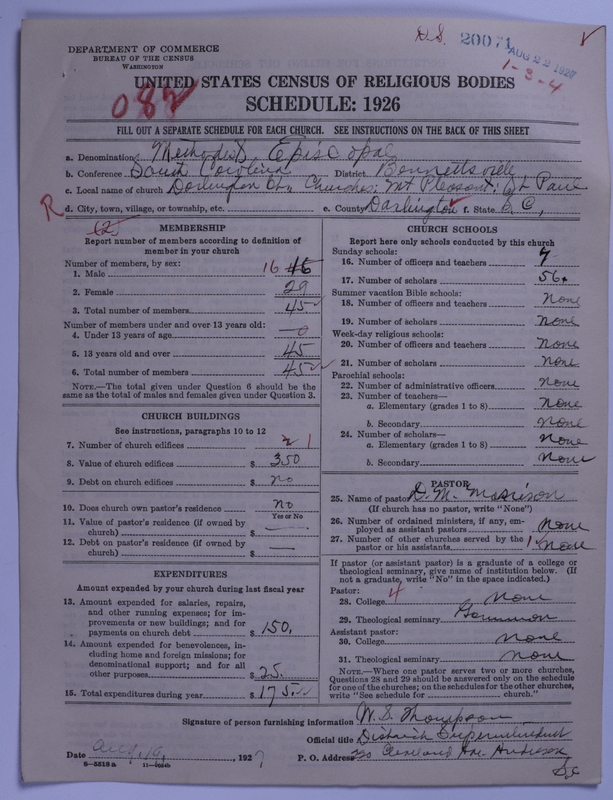 D.S. 20071 AUG 22 1927
1-3-4
DEPARTMENT OF COMMERCE
BUREAU OF THE CENSUS
WASHINGTON
UNITED STATES CENSUS OF RELIGIOUS BODIES
082
SCHEDULE: 1926
FILL OUT A SEPARATE SCHEDULE FOR EACH CHURCH. SEE INSTRUCTIONS ON THE BACK OF THIS SHEET
a. Denomination Methodist Episcopal
b. Conference South Carolina District Bennettsville
c. Local name of church Darlington Churches: Mt Pleasant;
R d. City, town, village, or township, etc. e. County Darlington f. State S.C.,
MEMBERSHIP
Report number of members according to definition of
member in your church
Number of members, by sex:
1. Male 16
2. Female 29
3. Total number of members 45
Number of members under and over 13 years old:
4. Under 13 years of age 0
5. 13 years old and over 45
6. Total number of members 45
NOTE.—The total given under Question 6 should be the
same as the total of males and females given under Question 3.
CHURCH BUILDINGS
See instructions, paragraphs 10 to 12
7. Number of church edifices 1
8. Value of church edifices $ 350
9. Debt on church edifices $ no
10. Does church own pastor's residence no
Yes or No
11. Value of pastor's residence (if owned by
church) $ —
12. Debt on pastor's residence (if owned by
church) $ —
EXPENDITURES
Amount expended by your church during last fiscal year
13. Amount expended for salaries, repairs,
and other running expenses; for im-
provements or new buildings; and for
payments on church debt $ 150.
14. Amount expended for benevolences, in-
cluding home and foreign missions; for
denominational support; and for all
other purposes $ 25.
15. Total expenditures during year $ 175
CHURCH SCHOOLS
Report here only schools conducted by this church
Sunday schools:
16. Number of officers and teachers 7
17. Number of scholars 56
Summer vacation Bible schools:
18. Number of officers and teachers none
19. Number of scholars none
Week-day religious schools:
20. Number of officers and teachers none
21. Number of scholars none
Parochial schools:
22. Number of administrative officers none
23. Number of teachers—
a. Elementary (grades 1 to 8) none
b. Secondary none
24. Number of scholars—
a. Elementary (grades 1 to 8) none
b. Secondary none
PASTOR
25. Name of pastor D. M. Morrison
(If church has no pastor, write "None")
26. Number of ordained ministers, if any, em-
ployed as assistant pastors none
27. Number of other churches served by the
pastor or his assistants 1 none
If pastor (or assistant pastor) is a graduate of a college or
theological seminary, give name of institution below. (If
not a graduate, write "No" in the space indicated.)
Pastor: 4
28. College none
29. Theological seminary Gammon
Assistant pastor:
30. College none
31. Theological seminary none
NOTE.—Where one pastor serves two or more churches,
Questions 28 and 29 should be answered only on the schedule
for one of the churches; on the schedules for the other churches,
write "See schedule for church."
Signature of person furnishing information W. S. Thompson
Official title District Superintendent
Date Aug. 19, 1927 P. O. Address Cleveland Ave Anderson
S.C
8-5518a